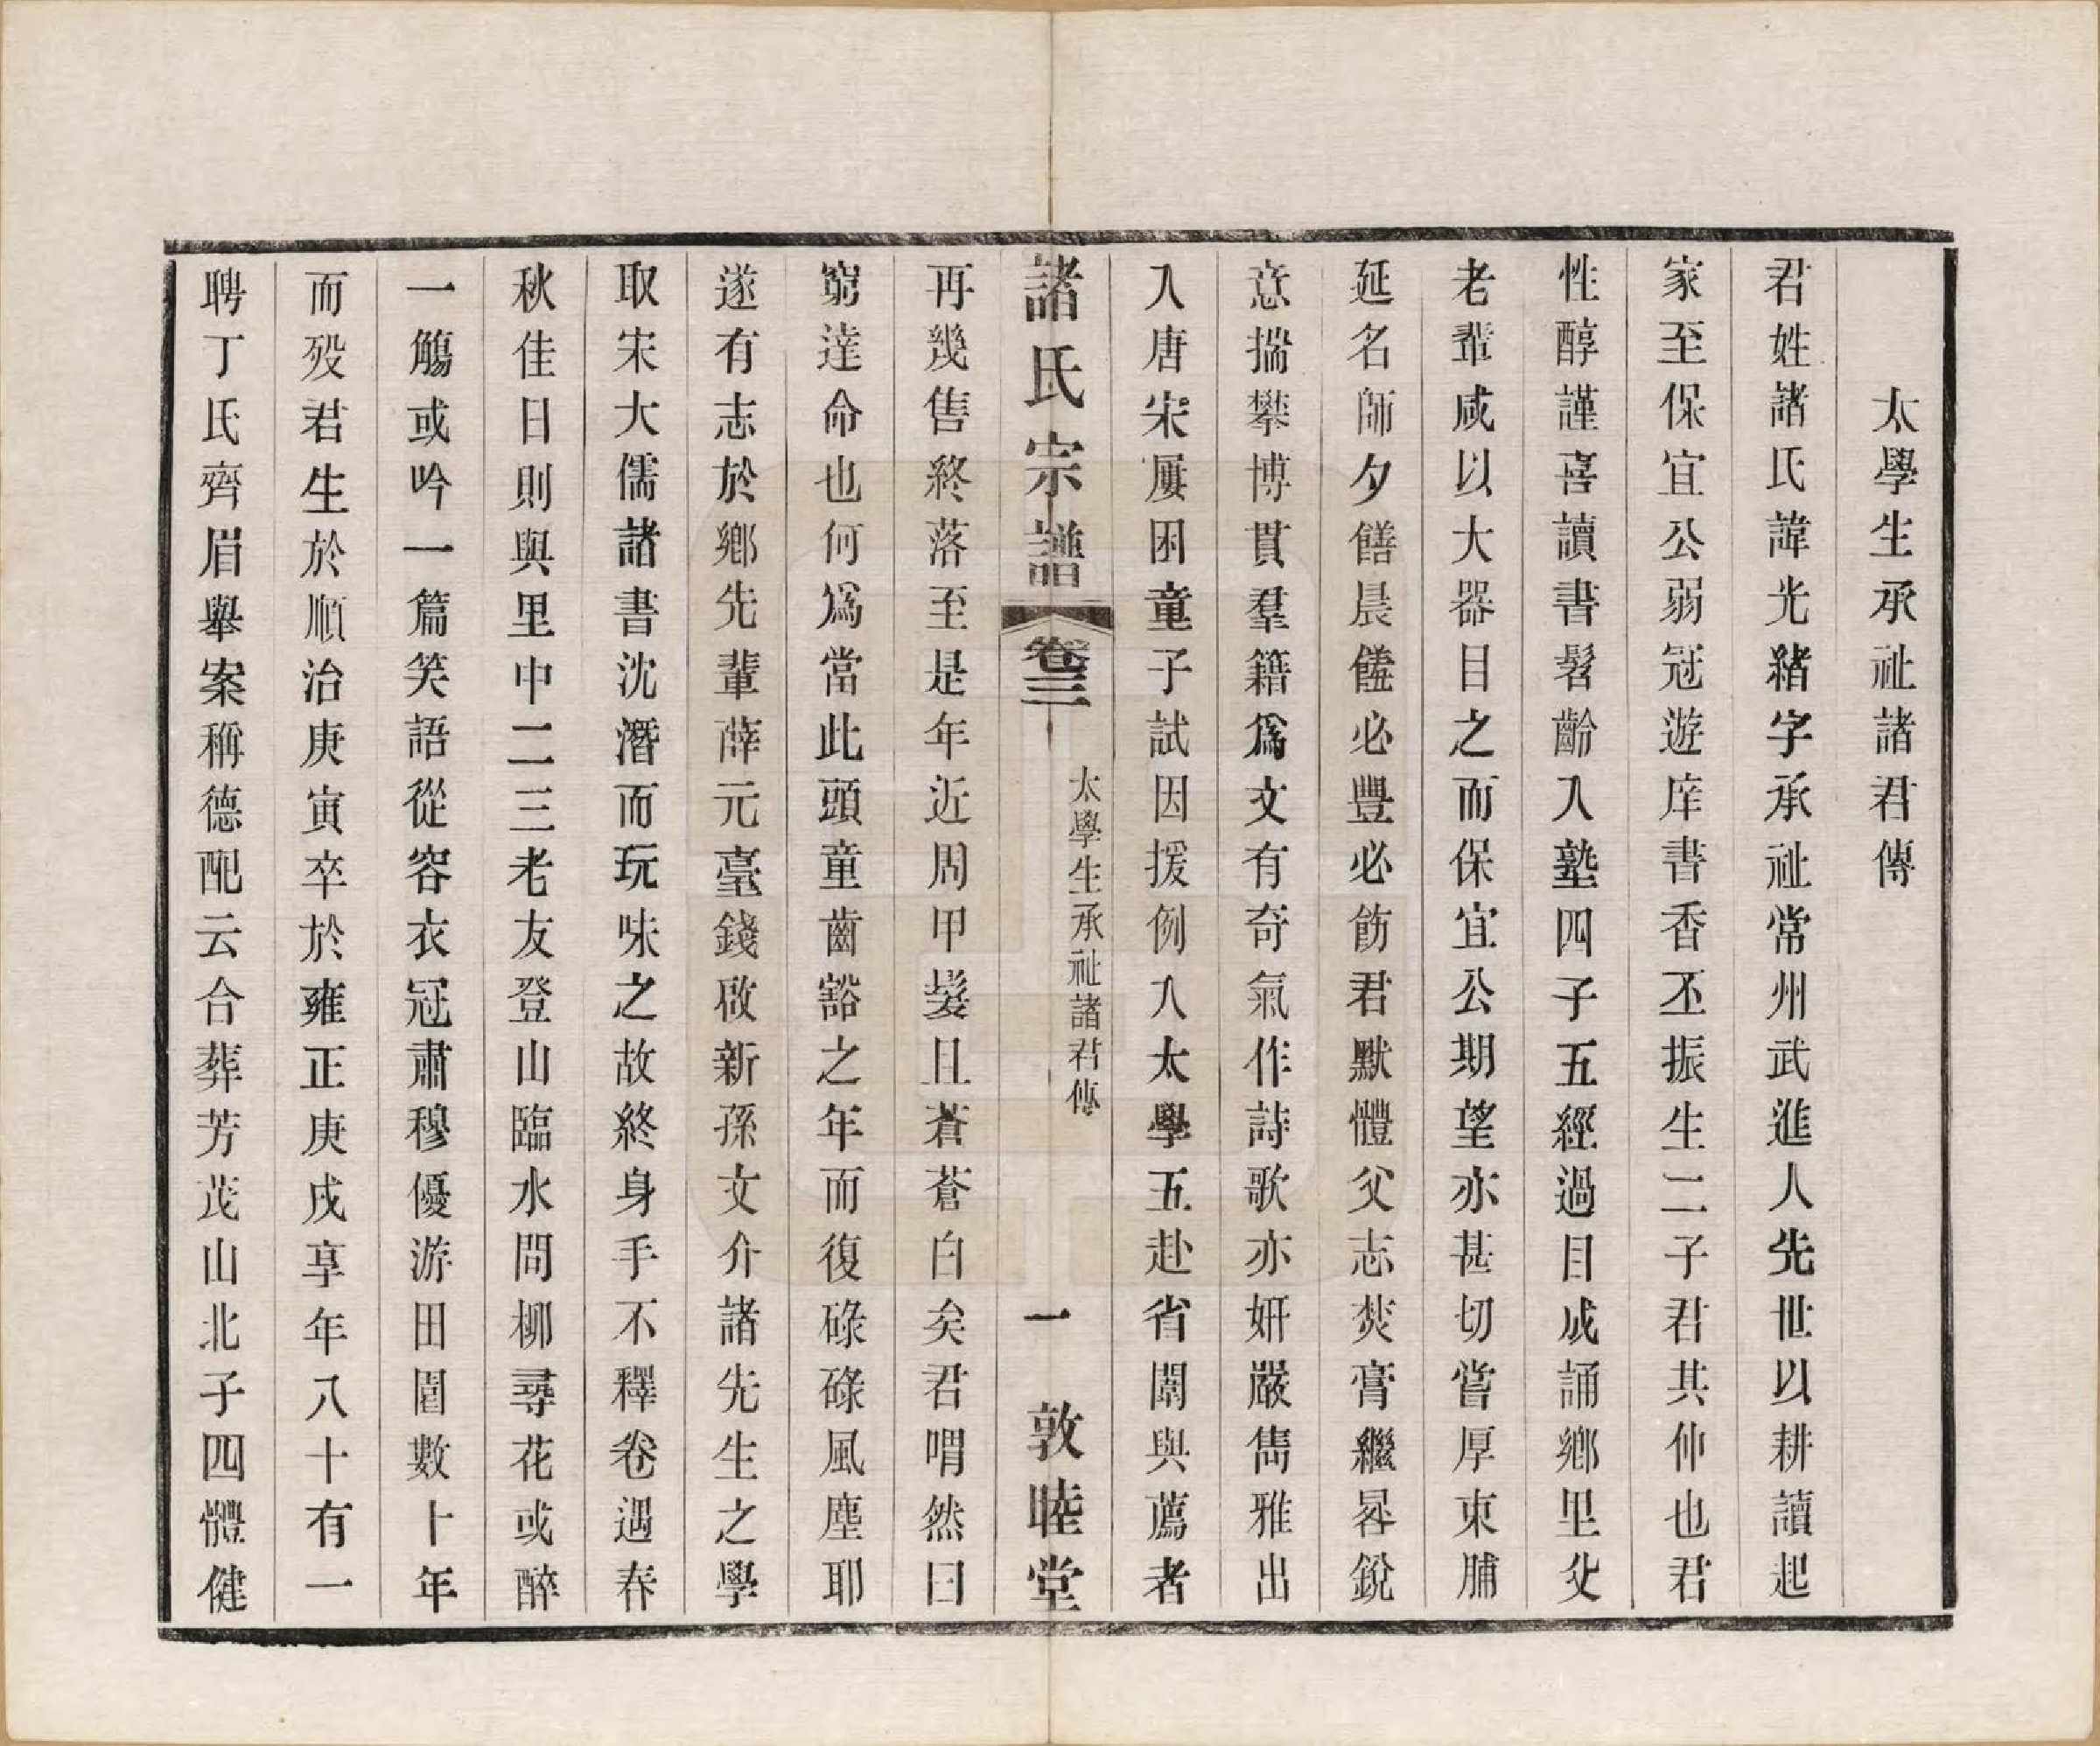 太學生承祉諸君傳
君姓諸氏諱光緒字承祉常州武進人先世以耕讀起
家至保宜公弱冠遊庠書香丕振生二子君其仲也君
性醇謹喜讀書髫齡入塾四子五經過目成誦鄉里父
老輩咸以大器目之而保宜公期望亦甚切嘗厚束脯
延名師夕饍晨饈必豐必飭君默體父志焚膏繼晷銳
意揣摹博貫羣籍爲文有奇氣作詩歌亦妍嚴雋雅出
入唐宋屢困童子試因援例入太學五赴省闈與薦者
諸氏宗譜 卷三 太學生承祉諸君傳 一 敦睦堂
再幾售終落至是年近周甲髮且蒼蒼白矣君喟然曰
窮達命也何爲當此頭童齒豁之年而復碌碌風塵耶
遂有志於鄉先輩薛元臺錢啟新孫文介諸先生之學
取宋大儒諸書沈潛而玩味之故終身手不釋卷遇春
秋佳日則與里中二三老友登山臨水問柳尋花或醉
一觴或吟一篇笑語從容衣冠肅穆優游田園數十年
而歿君生於順治庚寅卒於雍正庚戌享年八十有一
聘丁氏齊眉舉案稱德配云合葬芳茂山北子四體健